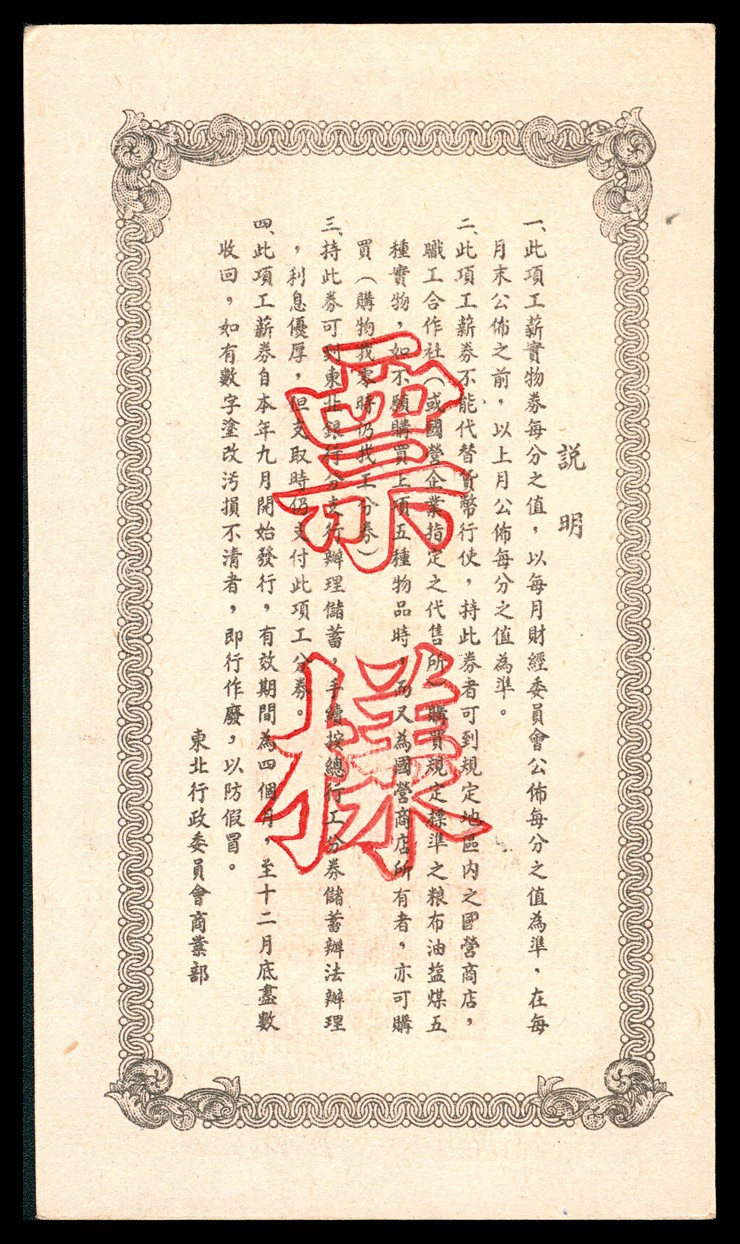 説明
一、此項工薪實物券每分之值，以每月財經委員會公佈每分之值為準，在每
月末公佈之前，以上月公佈每分之值為準。
二、此項工薪券不能代替貨幣行使，持此券者可到規定地區内之國營商店，
職工合作社（或國營企業指定之代售所）購買規定標準之粮布油盐煤五
種實物，如不願購買上項五種物品時，而又為國營商店所有者，亦可購
買（購物找零時仍找工分券）
三、持此券可到東北銀行分支行辦理儲蓄，手續按總行工分券儲蓄辦法辦理
，利息優厚，但支取時仍支付此項工分券。
四、此項工薪券自本年九月開始發行，有效期間為四個月，至十二月底盡數
收回，如有數字塗改污損不清者，即行作廢，以防假冒。
東北行政委員會商業部
票樣